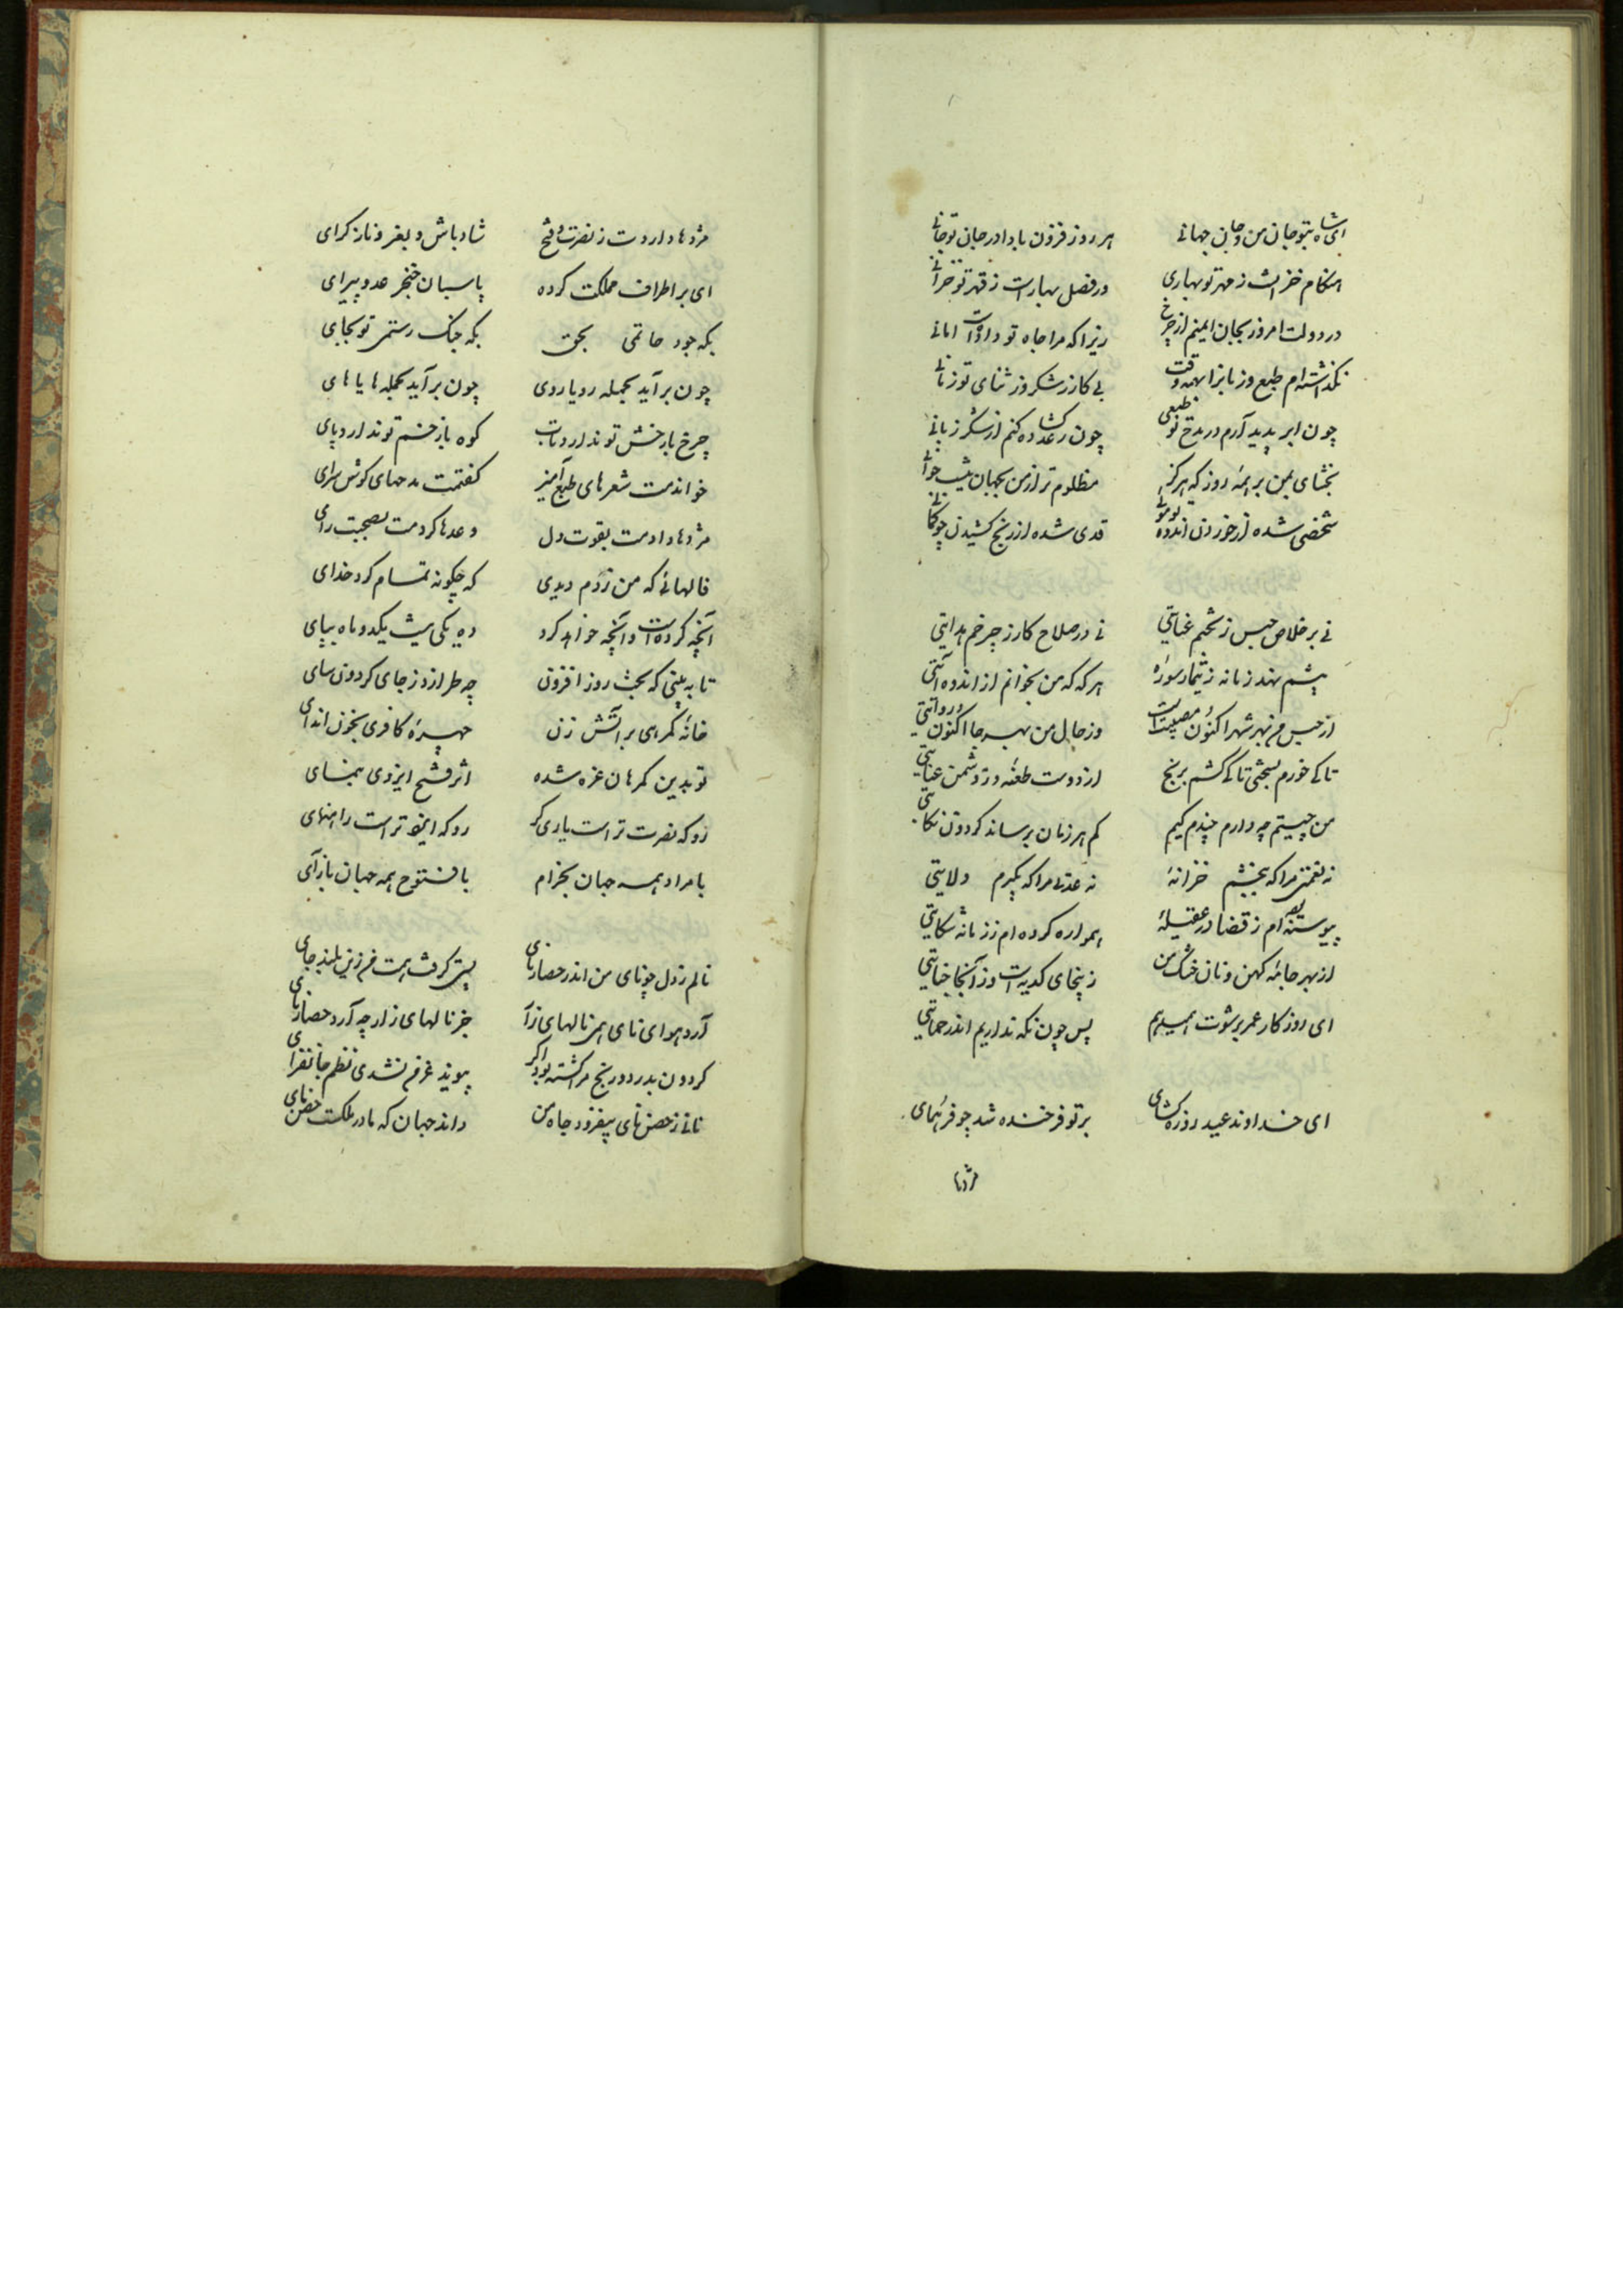 ای شاه بتو جان من و جان جهانی هر روز فزون باد ادر جان تو جانی
هنگام خزانست ز مهر تو بهاری در فصل بهارست ز قهر تو خزانی
در دولت امروز بجان ایمنم از چرخ زیرا که مرا جاه تو داد است امانی
نگذاشته‌ام طبع و زبانرا بهمه وقت بی کار ز شکر و ز ثنای تو زمانی
چون ابر پدید آرم در مدح تو طبعی چون رعد گشاده کنم از شکر زبانی
بخشای بمن بر همه روز که هرگز مظلوم‌تر از من بجهان نیست جوانی
شخصی شده از خوردن اندوه چو موئی قدی شده از رنج کشیدن چو کمانی
نی بر خلاص حبس ز بختم عنایتی نی در صلاح کار ز چرخم هدایتی
پیشم نهد زمانه ز تیمار سورۀ هر گه که من بخوانم از اندوه آیتی
از حبس من بهر شهر اکنون مصیبتست وز حال من بهر جا اکنون روایتی
تا کی خورم بسختی تا کی کشم برنج از دوست طعنه و ز دشمن عنایتی
من چیستم چه دارم چندم کیم کم هر زمان برساند گردون نکایتی
نه نعمتی مرا که ببخشم خزانۀ نه عدتی مرا که بگیرم ولایتی
پیوسته بوده‌ام ز قضا در عقیلۀ همواره کرده‌ام ز زمانه شکایتی
از بهر جامۀ کهن و نان خشک من زینجای کدیه است و ز آنجا خیانتی
ای روزگار عمر برشوت همیدهم پس چون نگه نداریم اندر حمایتی
ای خداوند عید روزه گشای بر تو فرخنده شد چو فر همای
مژدها
مژدها داردت ز نصرت و فتح شاد باش و بعز و ناز گرای
ای بر اطراف مملکت کرده پاسبان خنجر عدو پیرای
بگه جود حاتمی بحق بگه جنگ رستمی تو بجای
چون برآید بحمله رویاروی چون برآید بحمله هایاهای
چرخ با رخش تو ندارد تاب کوه با زخم تو ندارد پای
خواندمت شعرهای طبع آمیز گفتمت مدحهای گوش سرای
مژدها دادمت بقوت دل وعدها کردمت بصحبت رای
فالهائی که من زدم دیدی که چگونه تمام کرد خدای
آنچه کرده است و آنچه خواهد کرد ده یکی نیست یکدو ماه بپای
تا ببینی که بخت روزافزون چه طرازد ز جای گردون سای
خانۀ گمرهی بر آتش زن چهرۀ کافری بخون اندای
تو بدین گمرهان غره شده اثر فتح ایزدی بنمای
رو که نصرت تراست یاری گر رو که ایزد تراست راهنمای
با مراد همه جهان بخرام با فتوح همه جهان بازآی
نالم ز دل چو نای من اندر حصار نای پستی گرفت همت من زین بلند جای
آرد هوای نای همی نالهای زار جز نالهای زار چه آرد حصار نای
گردون بدرد و رنج مرا کشته بود اگر پیوند عمر من نشدی نظم جانفزای
نی نی ز حصن نای بیفزود جاه من داند جهان که مادر ملکست حصن نای